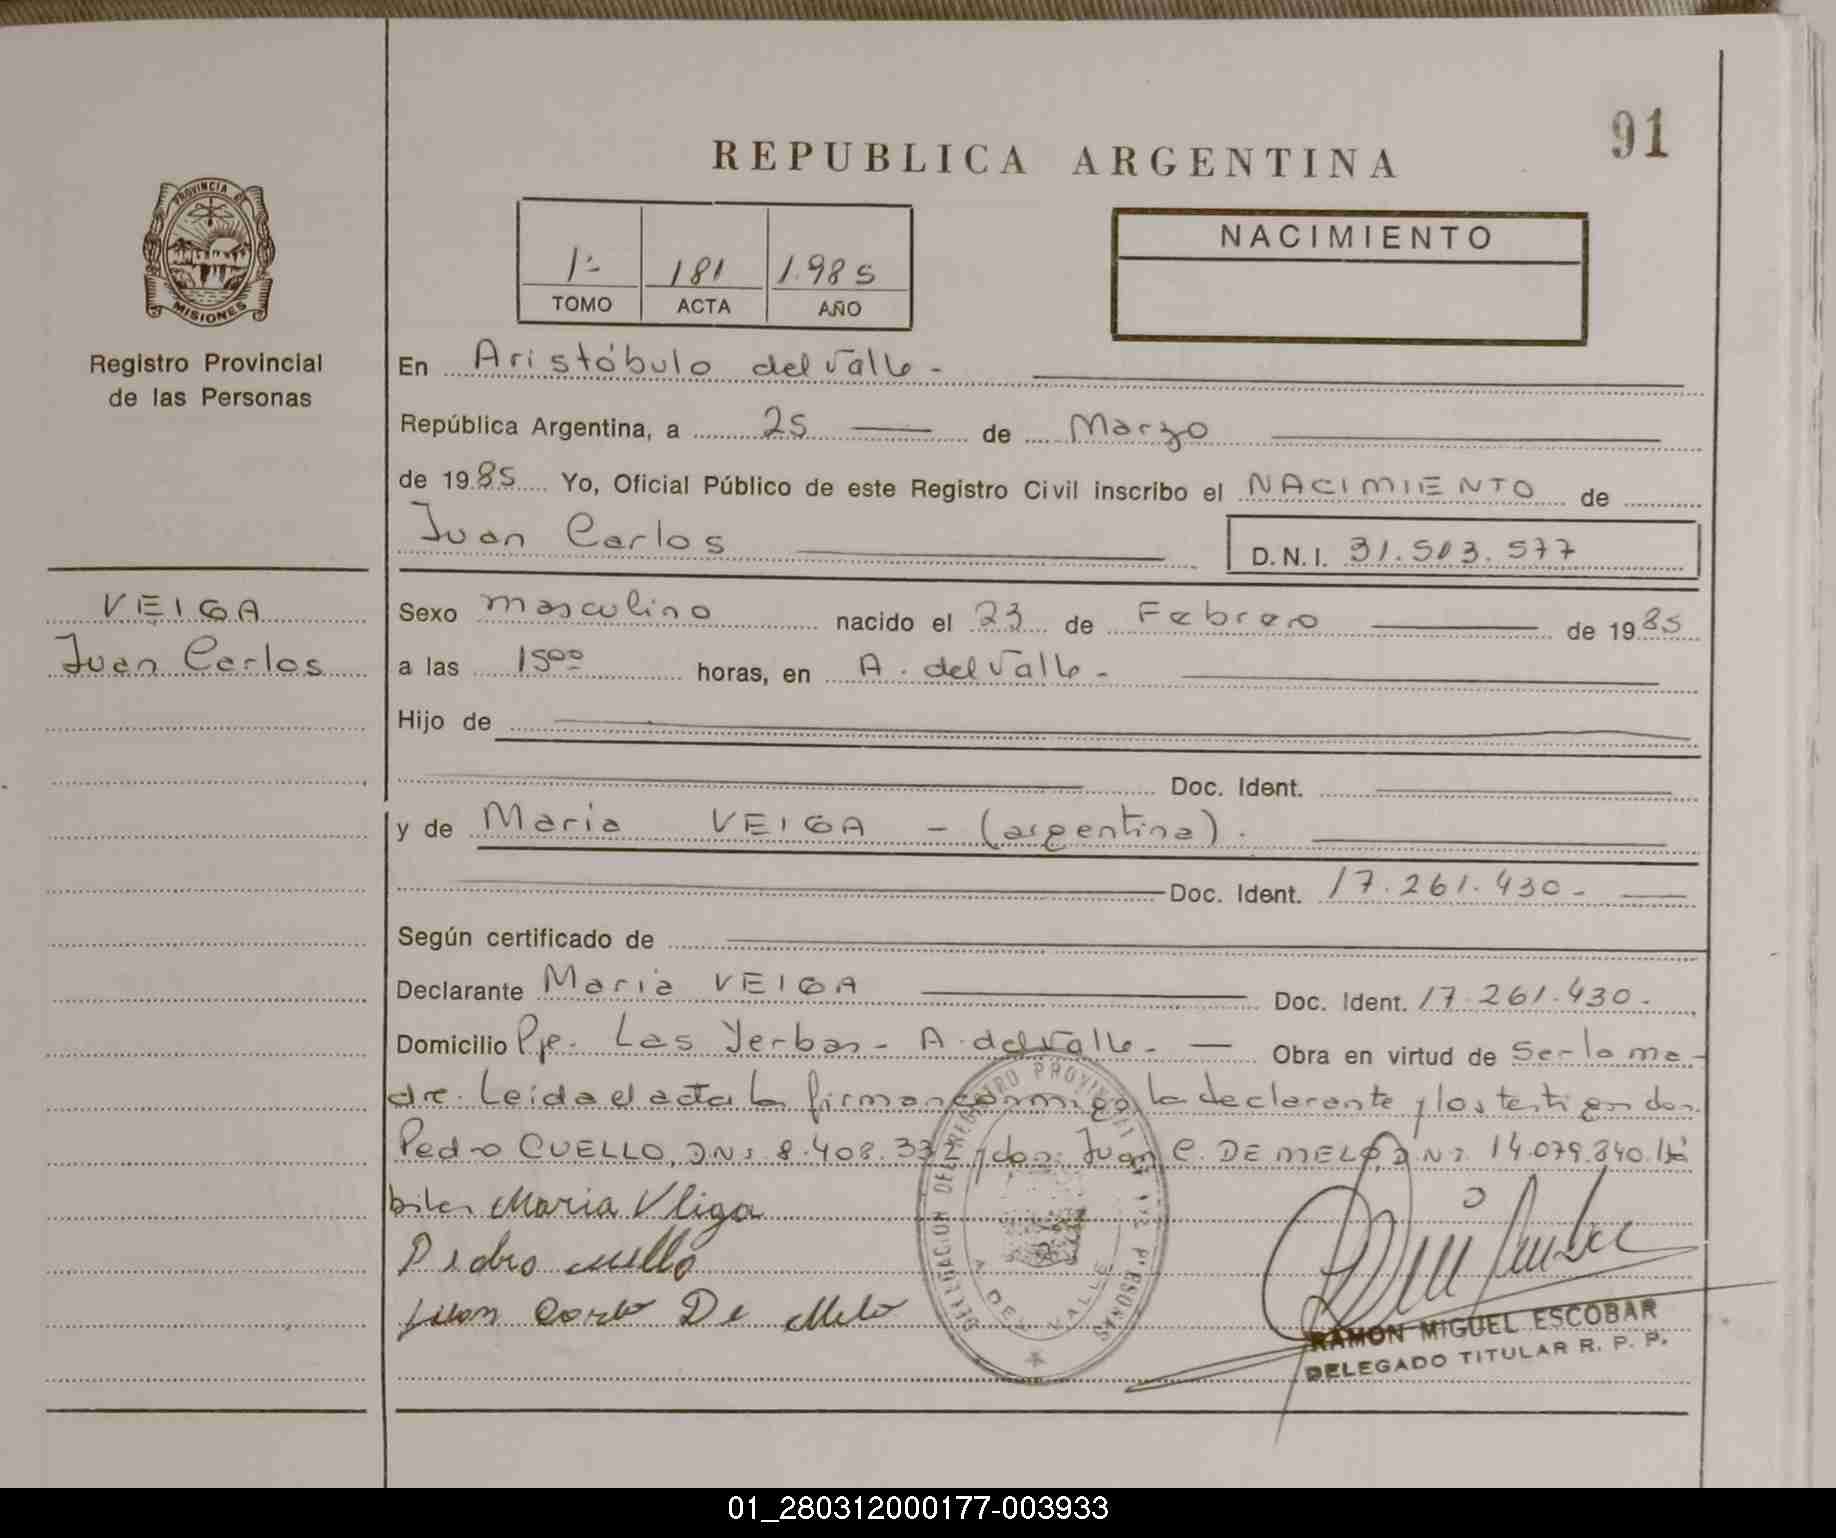 91
REPUBLICA ARGENTINA
PROVINCIA DE
MISIONES
Registro Provincial
de las Personas
1º 181 1.985
TOMO ACTA AÑO
NACIMIENTO
En Aristóbulo del Valle -
República Argentina, a 25 de Marzo
de 1985 Yo, Oficial Público de este Registro Civil inscribo el NACIMIENTO de
Juan Carlos D.N.I. 31.513.577
VEIGA
Juan Carlos
Sexo masculino nacido el 23 de Febrero de 1985
a las 15ºº horas, en A. del Valle -
Hijo de
Doc. Ident.
y de Maria VEIGA - (argentina).
Doc. Ident. 17.261.430-
Según certificado de
Declarante Maria VEIGA Doc. Ident. 17.261.430.
Domicilio Pje. Las Yerbas - A. del Valle - Obra en virtud de Ser la ma-
dre. Leida el acta la firman conmigo la declarante y los testigos don
Pedro CUELLO, DNI 8.408.332 y don: Juan C. DE MELO, DNI 14.079.840. Há
biles Maria Veiga
Pedro cuello
Juan Carlo De Melo
DELEGACION DEL REGISTRO PROVINCIAL DE LAS PERSONAS
A. DEL VALLE
RAMON MIGUEL ESCOBAR
DELEGADO TITULAR R. P. P.
01_280312000177-003933